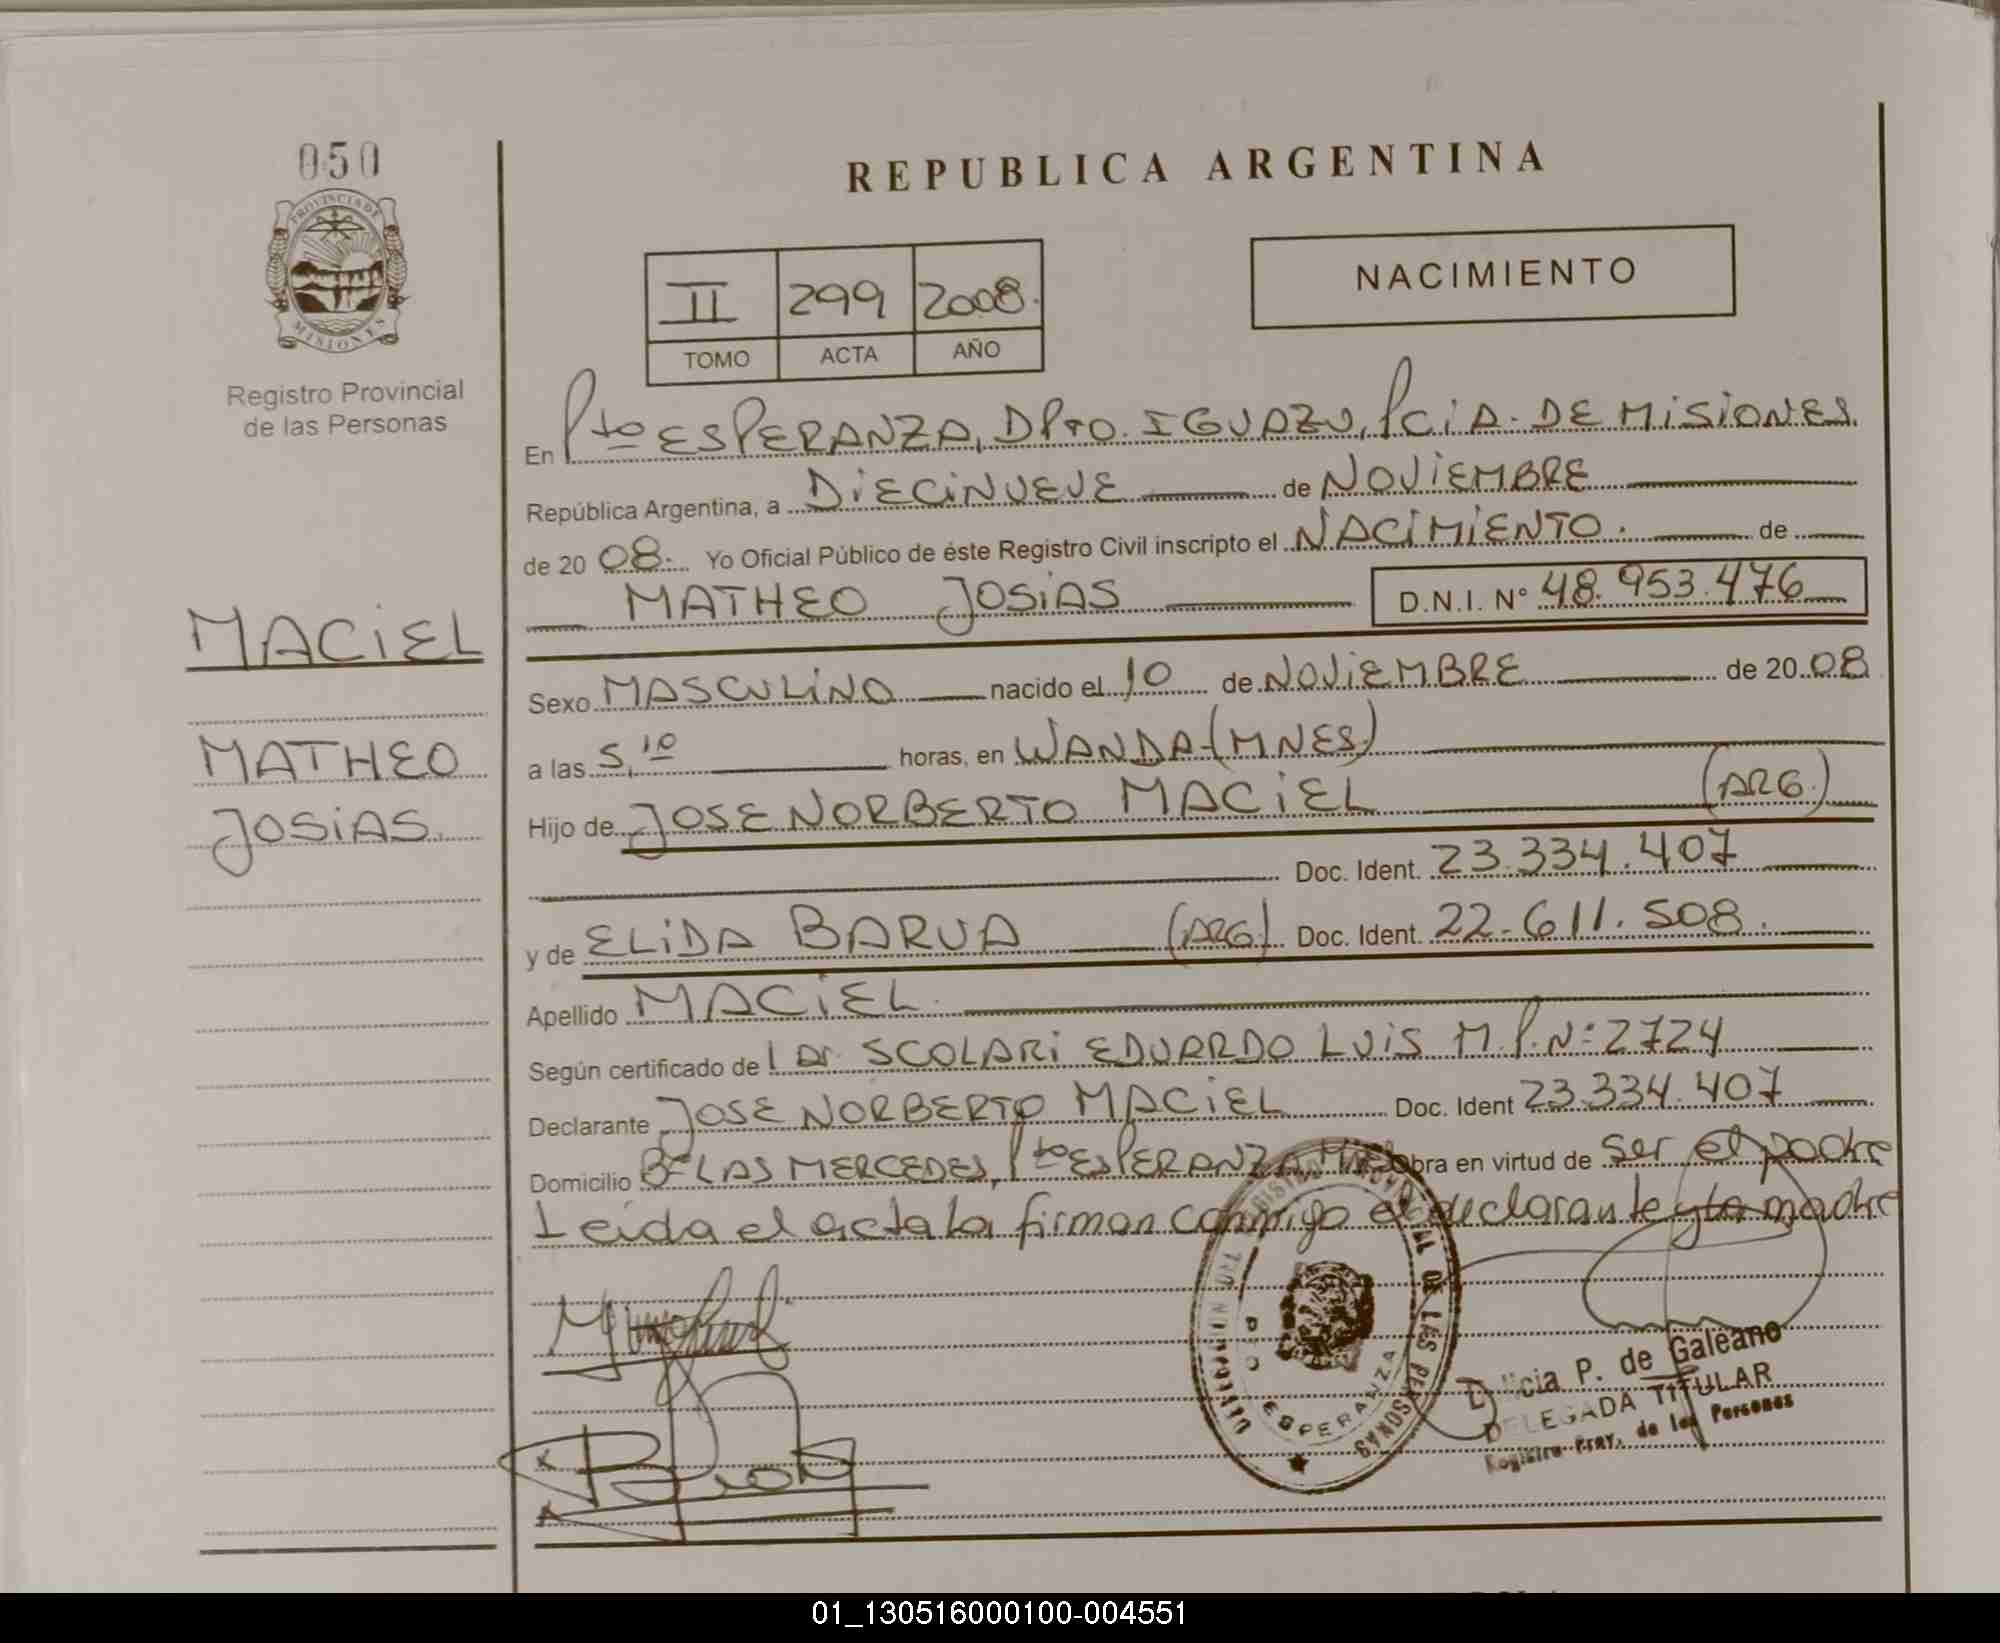 050
PROVINCIA DE
MISIONES
Registro Provincial
de las Personas
MACIEL
MATHEO
JOSIAS
REPUBLICA ARGENTINA
II 299 2008.
TOMO ACTA AÑO
NACIMIENTO
En Pto ESPERANZA, DPTO. IGUAZU, PCIA. DE MISIONES.
República Argentina, a DIECINUEVE de NOVIEMBRE
de 20 08. Yo Oficial Público de éste Registro Civil inscripto el NACIMIENTO. de
MATHEO JOSIAS D.N.I. N° 48.953.476
Sexo MASCULINO nacido el 10 de NOVIEMBRE de 20 08
a las 5,10 horas, en WANDA-(MNES.)
Hijo de JOSE NORBERTO MACIEL (ARG.)
Doc. Ident. 23.334.407
y de ELIDA BARUA (ARG.) Doc. Ident. 22.611.508.
Apellido MACIEL.
Según certificado de l Dr. SCOLARI EDUARDO LUIS M.P.N:2724
Declarante JOSE NORBERTO MACIEL Doc. Ident 23.334.407
Domicilio Bº LAS MERCEDES, Pto ESPERANZA Obra en virtud de ser el padre
Leida el acta la firman conmigo el declarante y la madre
REGISTRO PROVINCIAL DE LAS PERSONAS
ESPERANZA
P. de Galeano
DELEGADA TITULAR
Registro Prov. de las Personas
01_130516000100-004551